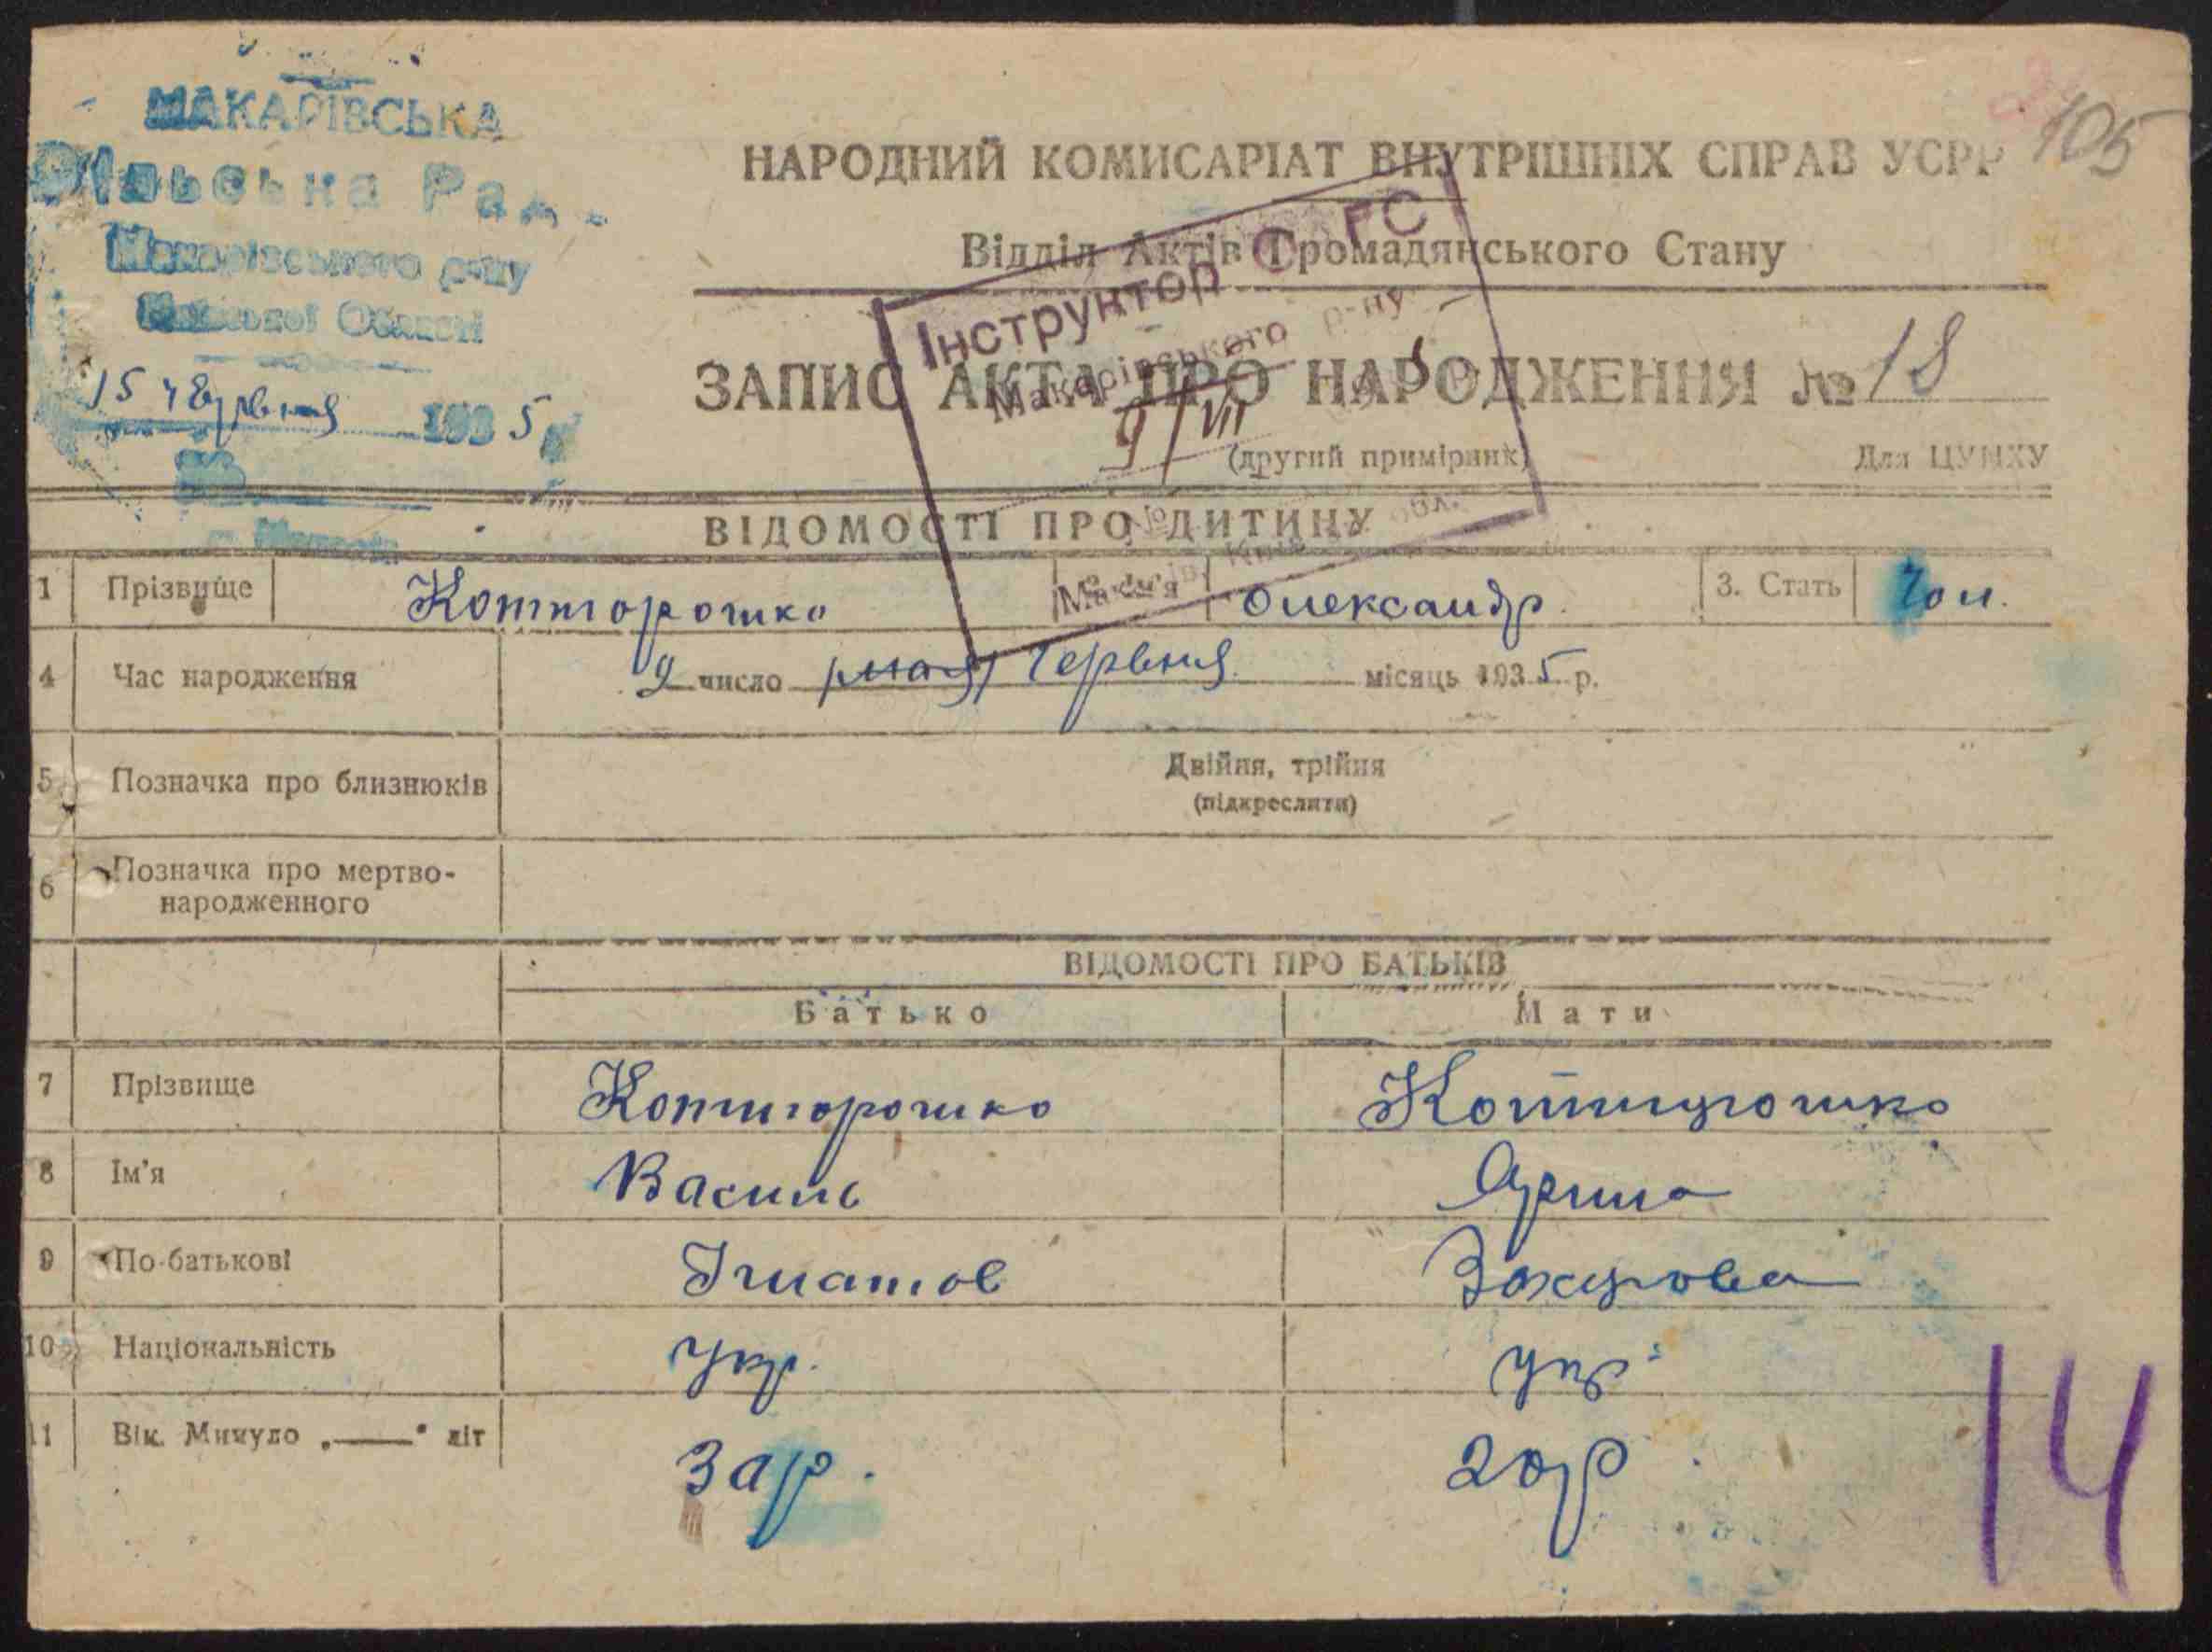 105
МАКАРІВСЬКА
Сільська Рада
Макарівського р-ну
Київської Області
15 червня 1935
НАРОДНИЙ КОМИСАРІАТ ВНУТРІШНІХ СПРАВ УСРР
Відділ Актів Громадянського Стану
Інструктор ГС
Макарівського р-ну
9/VII
ЗАПИС АКТА ПРО НАРОДЖЕННЯ № 18
(другий примірник)
Для ЦУНХУ
ВІДОМОСТІ ПРО ДИТИНУ
1 Прізвище Коттгорошко Ім'я Олександр. 3. Стать Чол.
4 Час народження 9 число (мая) Червня місяць 1935 р.
5 Позначка про близнюків Двійня, трійня
(підкреслити)
6 Позначка про мертво-
народженного
ВІДОМОСТІ ПРО БАТЬКІВ
Батько Мати
7 Прізвище
8 Ім'я Василь Ярина
9 По-батькові Ігнатов Захарова
10 Національність укр. укр.
11 Вік. Минуло „——“ літ 20 р
14